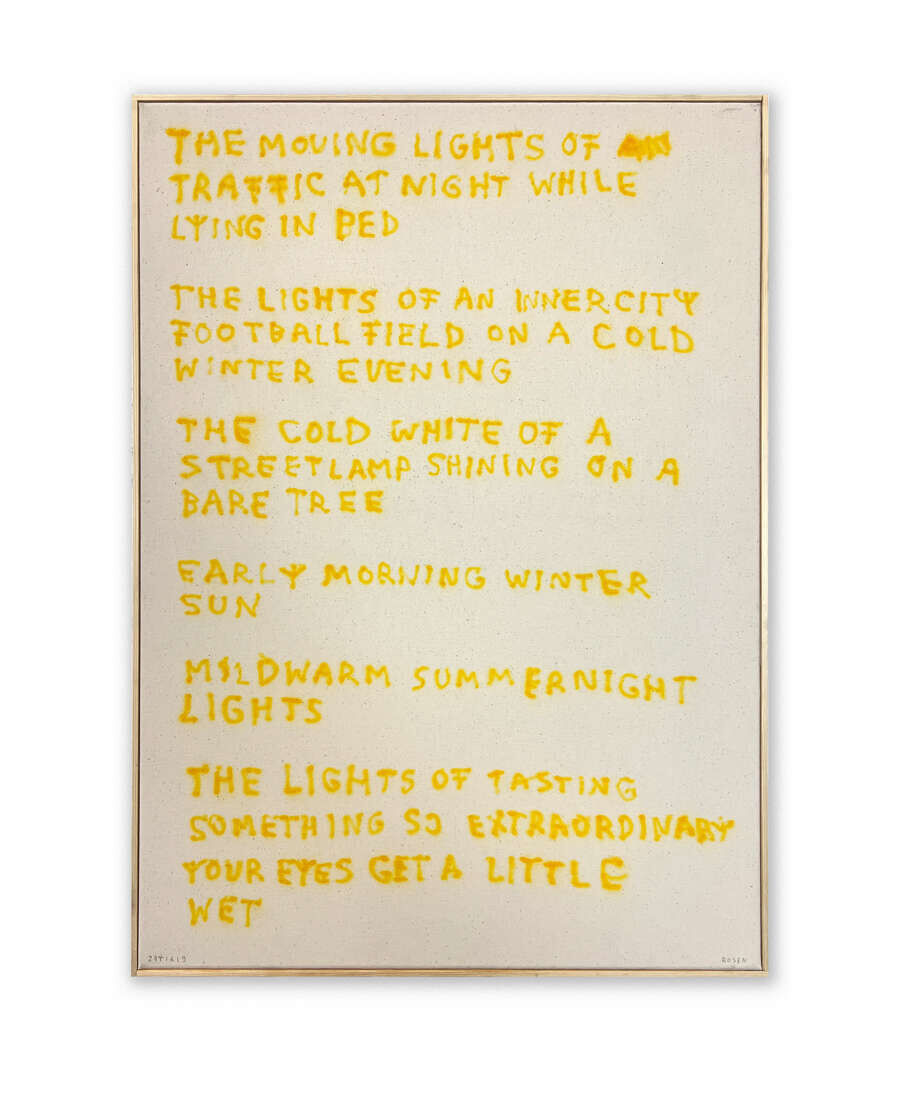 THE MOVING LIGHTS OF
TRAFFIC AT NIGHT WHILE
LYING IN BED
THE LIGHTS OF AN INNERCITY
FOOTBALL FIELD ON A COLD
WINTER EVENING
THE COLD WHITE OF A
STREETLAMP SHINING ON A
BARE TREE
EARLY MORNING WINTER
SUN
MILDWARM SUMMERNIGHT
LIGHTS
THE LIGHTS OF TASTING
SOMETHING SO EXTRAORDINARY
YOUR EYES GET A LITTLE
WET
ROSEN